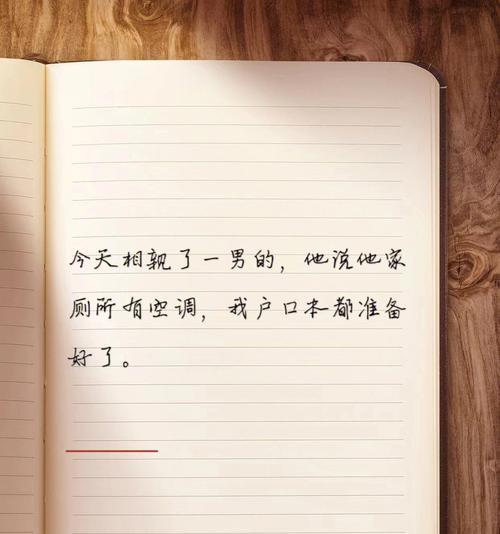 今天相亲了一男的，他说他家
厕所有空调，我户口本都准备
好了。